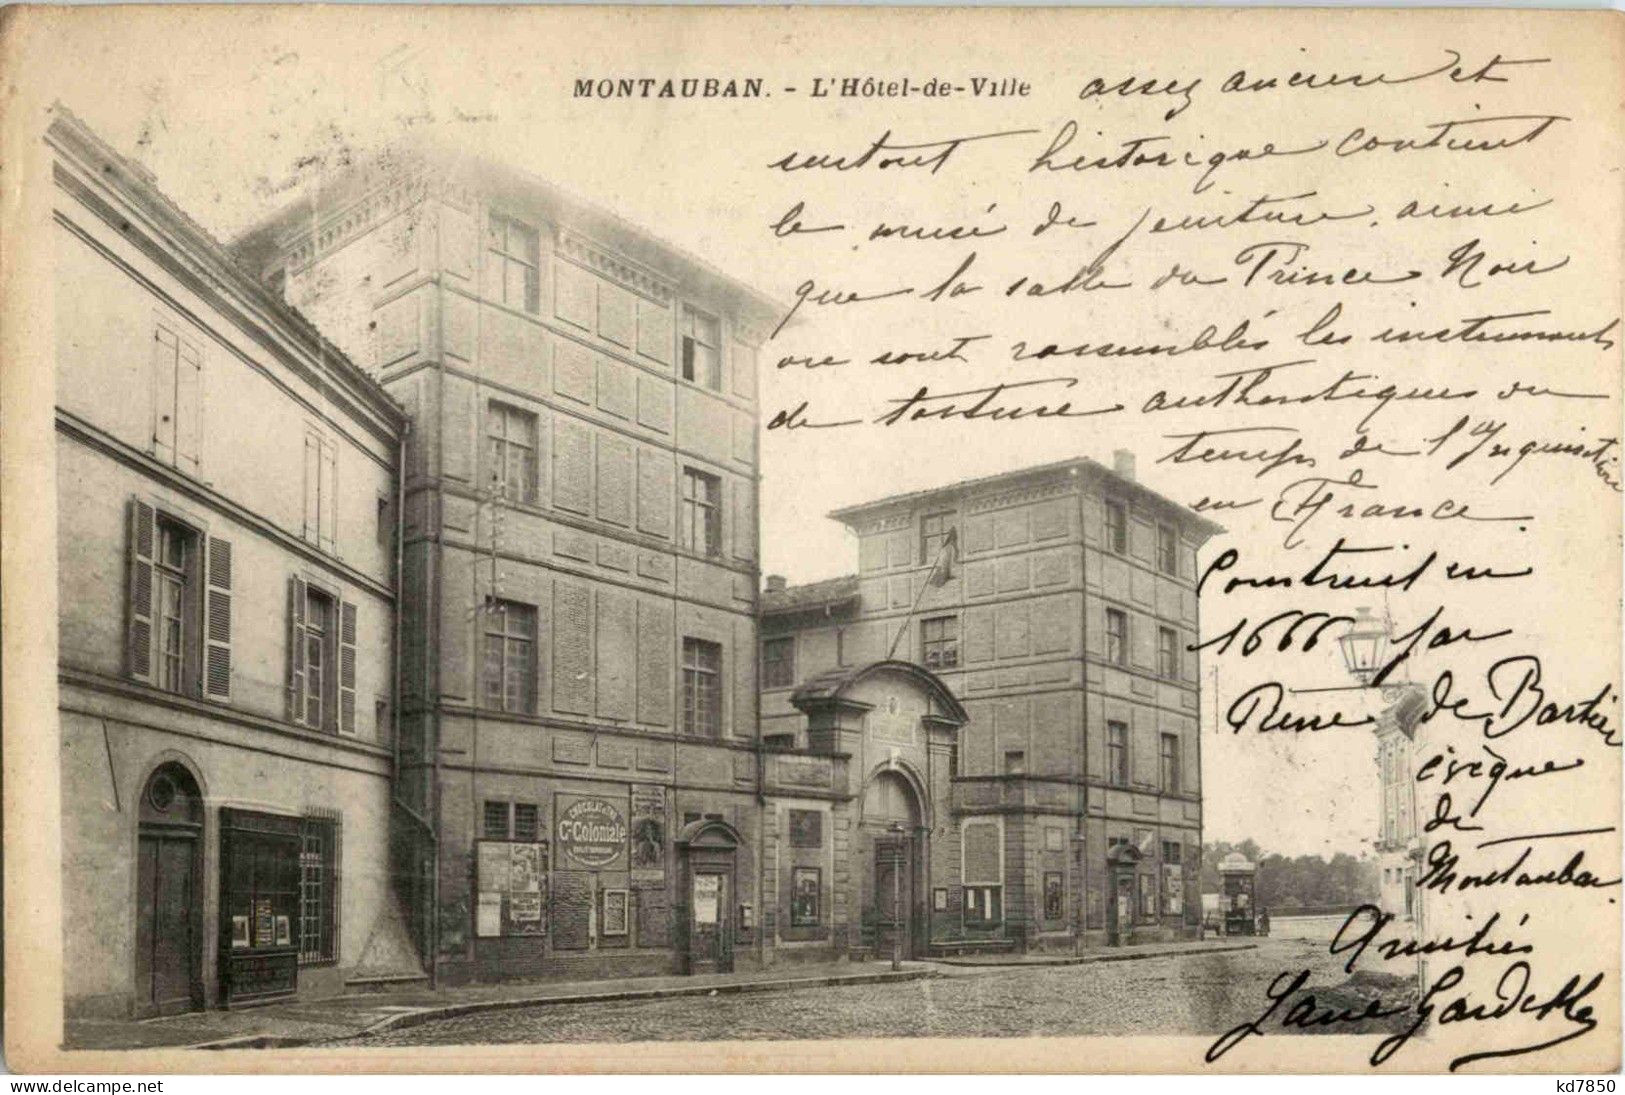 MONTAUBAN. - L'Hôtel-de-Ville
assez ancien et
surtout historique contient
le musé de peinture, ainsi
que la salle du Prince Noir
ou sont rassemblés les instruments
de torture authentiques du
temps de l'Inquisition
en France.
Construit en
1666 par
Rene de Bartier
évèque
de
Montauban.
Amitiés
Jane
CHOCOLAT
Cie Coloniale
delcampe.net
kd7850